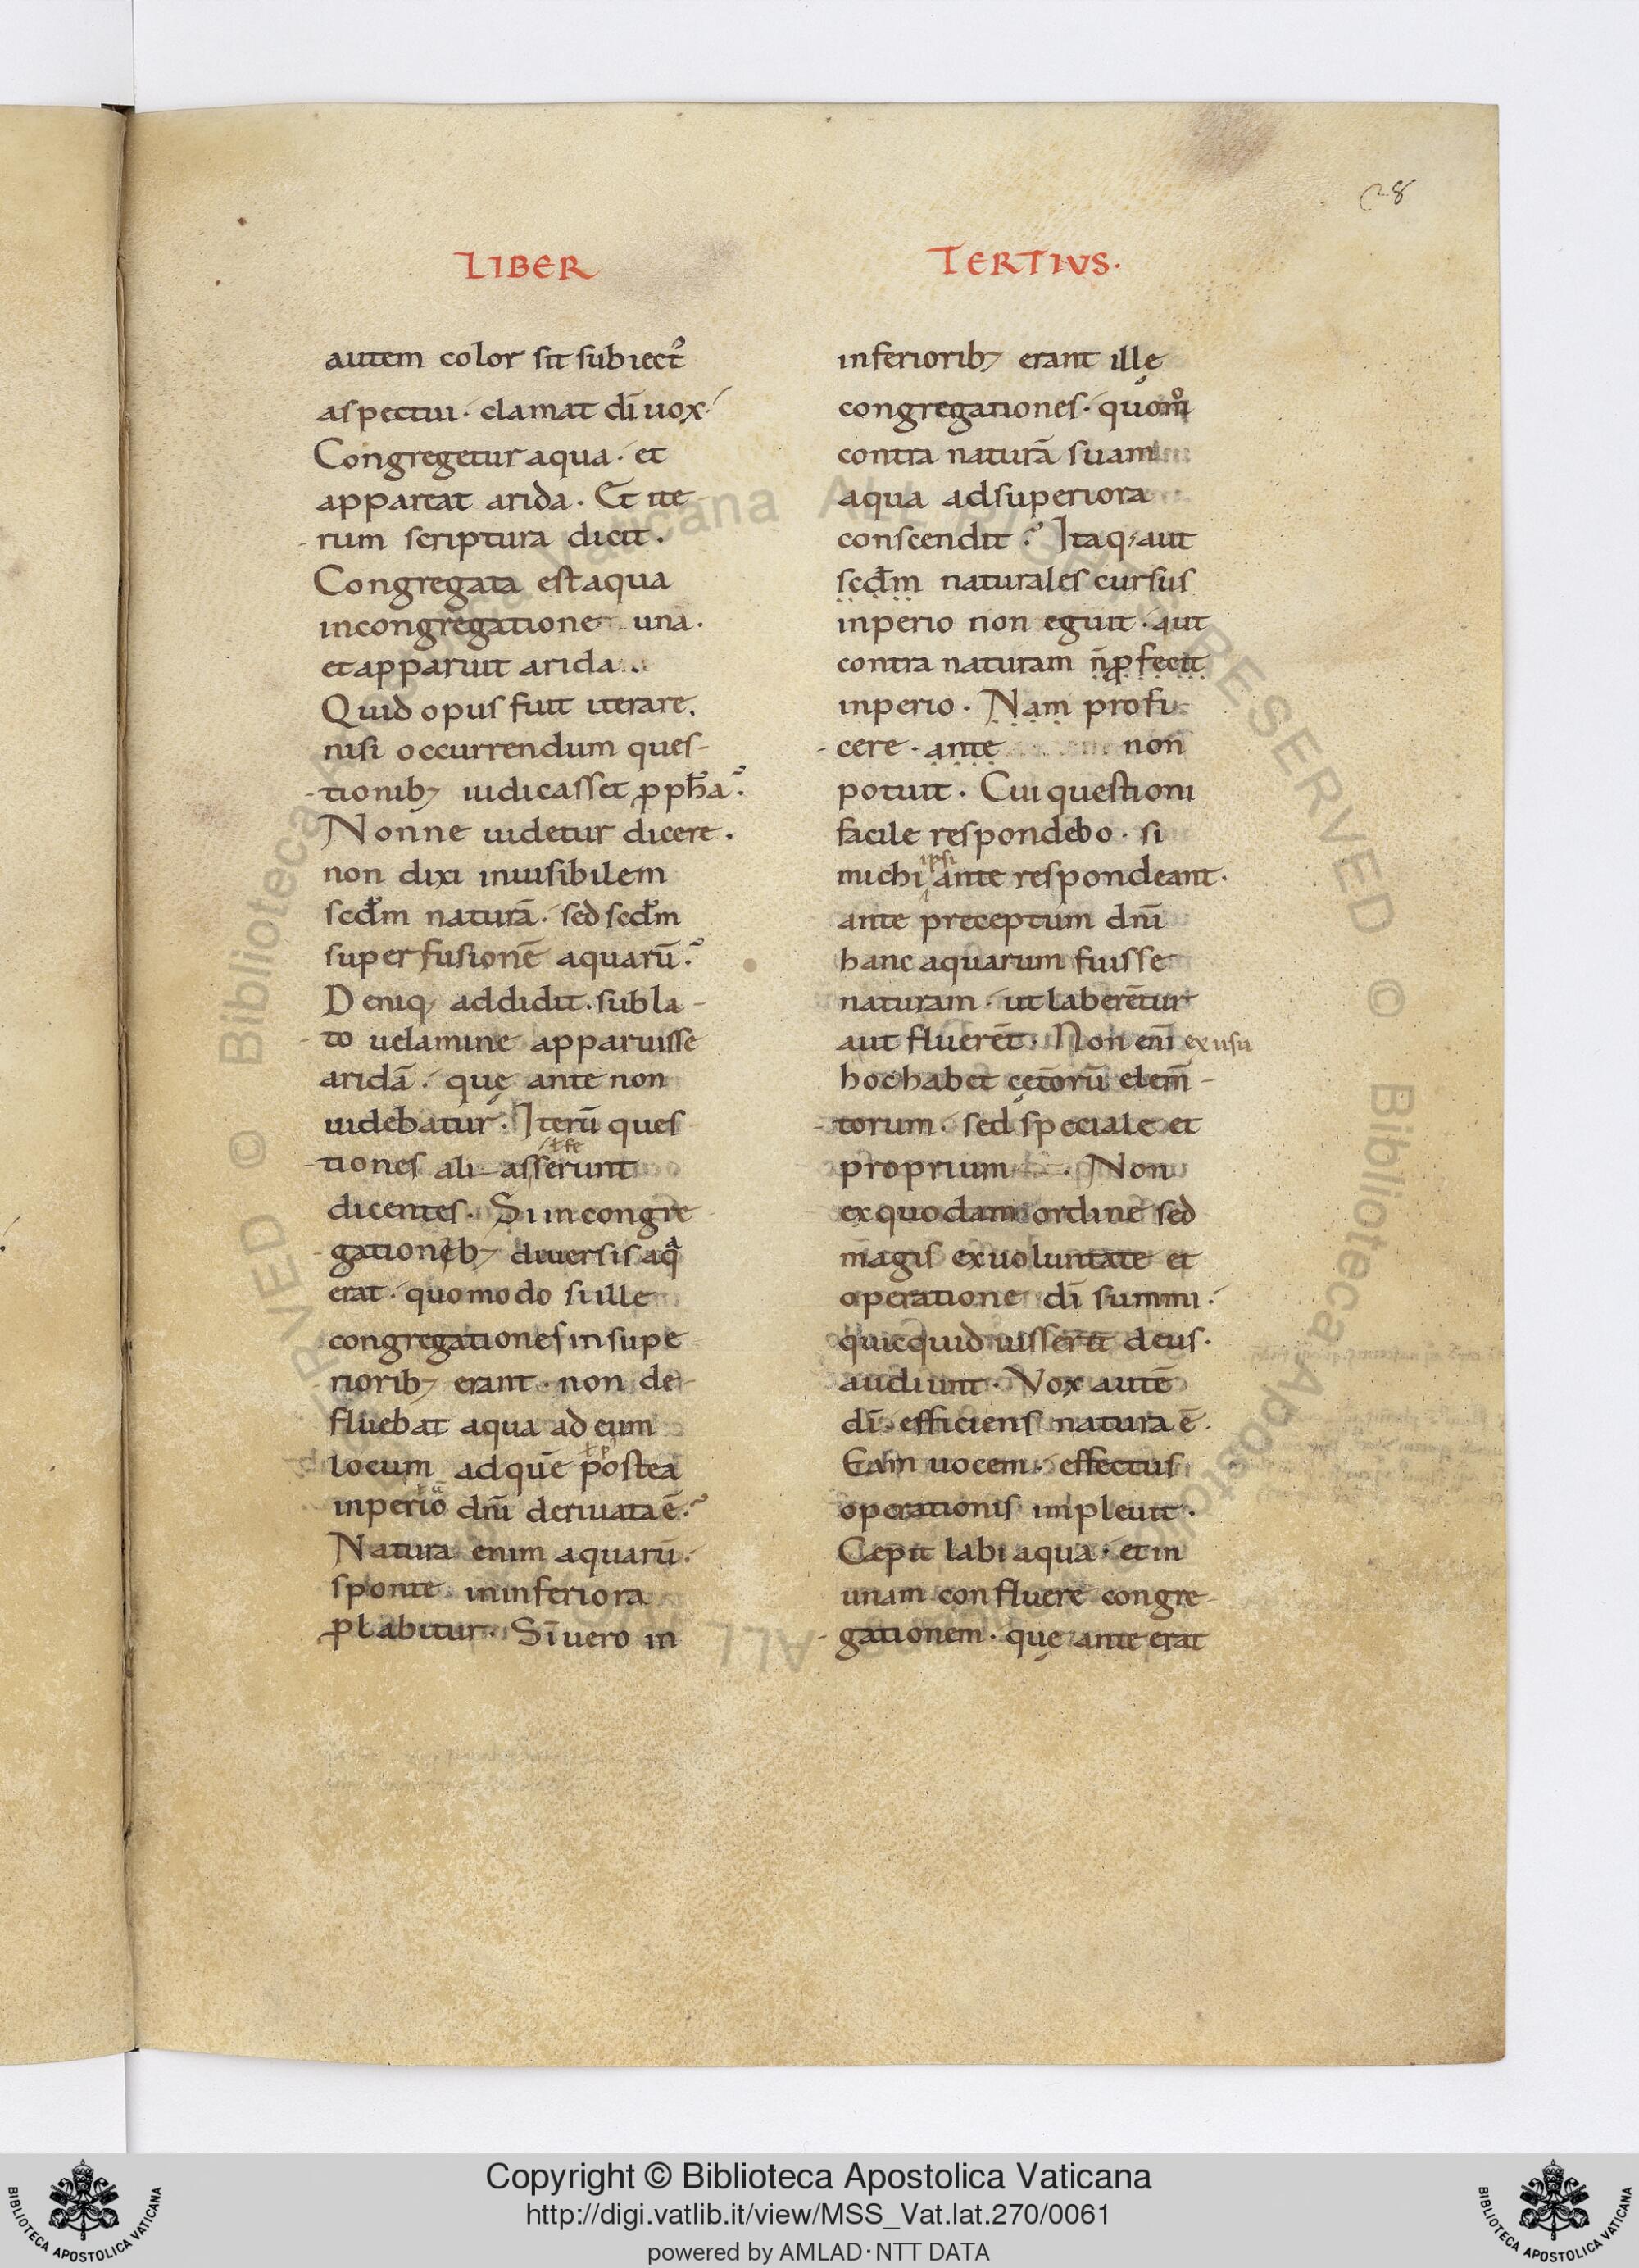 28
LIBER
autem color sit subiect᾿
aspectui · clamat dī uox·
Congregetur aqua · et
appareat arida . Et ite
rum scriptura dicit .
Congregata est aqua
incongregatione una .
et apparuit arida .
Quid opus fuit iterare .
nisi occurrendum ques-
tionib; iudicasset ꝓpħa?
Nonne uidetur dicere .
non dixi inuisibilem
scđm naturā · sed scđm
superfusionē aquarū ?
Deniq; addidit . subla-
to uelamine apparuisse
aridā · quę ante non
uidebatur . Iterū ques
tiones ali asserunt
dicentes . Si in congre
gationib; diuersis aqᷓ
erat · quomodo si ille
congregationes in supe
riorib; erant · non de-
fluebat aqua ad eum
locum ad quē postea
inperio dn̄i deriuata ē ?
Natura enim aquarū ·
sponte in inferiora
ꝓlabitur . Sin uero in
TERTIVS.
inferiorib; erant illę
congregationes · quom̊
contra naturā suam
aqua ad superiora
conscendit ? Itaq; aut
scđm naturales cursus
inperio non eguit · aut
contra naturam n̄ ꝓfecit
inperio . Nam profi
cere . ante non
potuit . Cui questioni
facile respondebo · si
ipsi
michi ante respondeant .
ante preceptum dn̄i
hanc aquarum fuisse
naturam · ut laberētur
aut fluerēt . Non eni ex usu
hoc habet cęterorū elem̄-
torum · sed speciale et
proprium . Non
ex quodam ordine sed
magis ex uoluntate et
operatione dī summi ·
quicquid iusserit deus .
audiunt . Vox autē
dī efficiens natura ē .
Eam uocem · effectus
operationis impleuit .
Cępit labi aqua · et in
unam confluere congre-
gationem . quę ante erat
© Biblioteca Apostolica Vaticana ALL RIGHTS RESERVED
© Biblioteca Apostolica
BIBLIOTECA APOSTOLICA VATICANA
Copyright © Biblioteca Apostolica Vaticana
http://digi.vatlib.it/view/MSS_Vat.lat.270/0061
powered by AMLAD·NTT DATA
BIBLIOTECA APOSTOLICA VATICANA